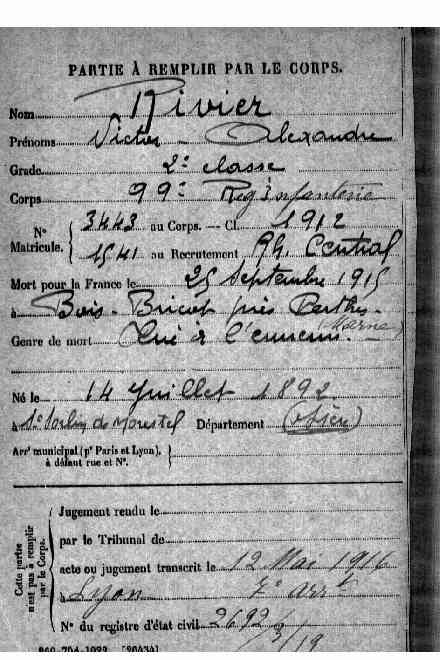 PARTIE À REMPLIR PAR LE CORPS.
Nom Rivier
Prénoms Victor - Alexandre
Grade 2e classe
Corps 99e Reg. Infanterie
N° Matricule. 3443 au Corps. — Cl. 1912
1541 au Recrutement Rh. Central
Mort pour la France le 25 Septembre 1915
à Bois - Bricot près Perthes - (Marne)
Genre de mort Tué à l'ennemi.
Né le 14 Juillet 1892
à St Sorlin de Morestel Département (Isère)
Arrt municipal (pr Paris et Lyon),
à défaut rue et N°.
Cette partie n'est pas à remplir par le Corps.
Jugement rendu le
par le Tribunal de
acte ou jugement transcrit le 12 Mai 1916
à Lyon 7e arrt
N° du registre d'état civil 2692/3/19